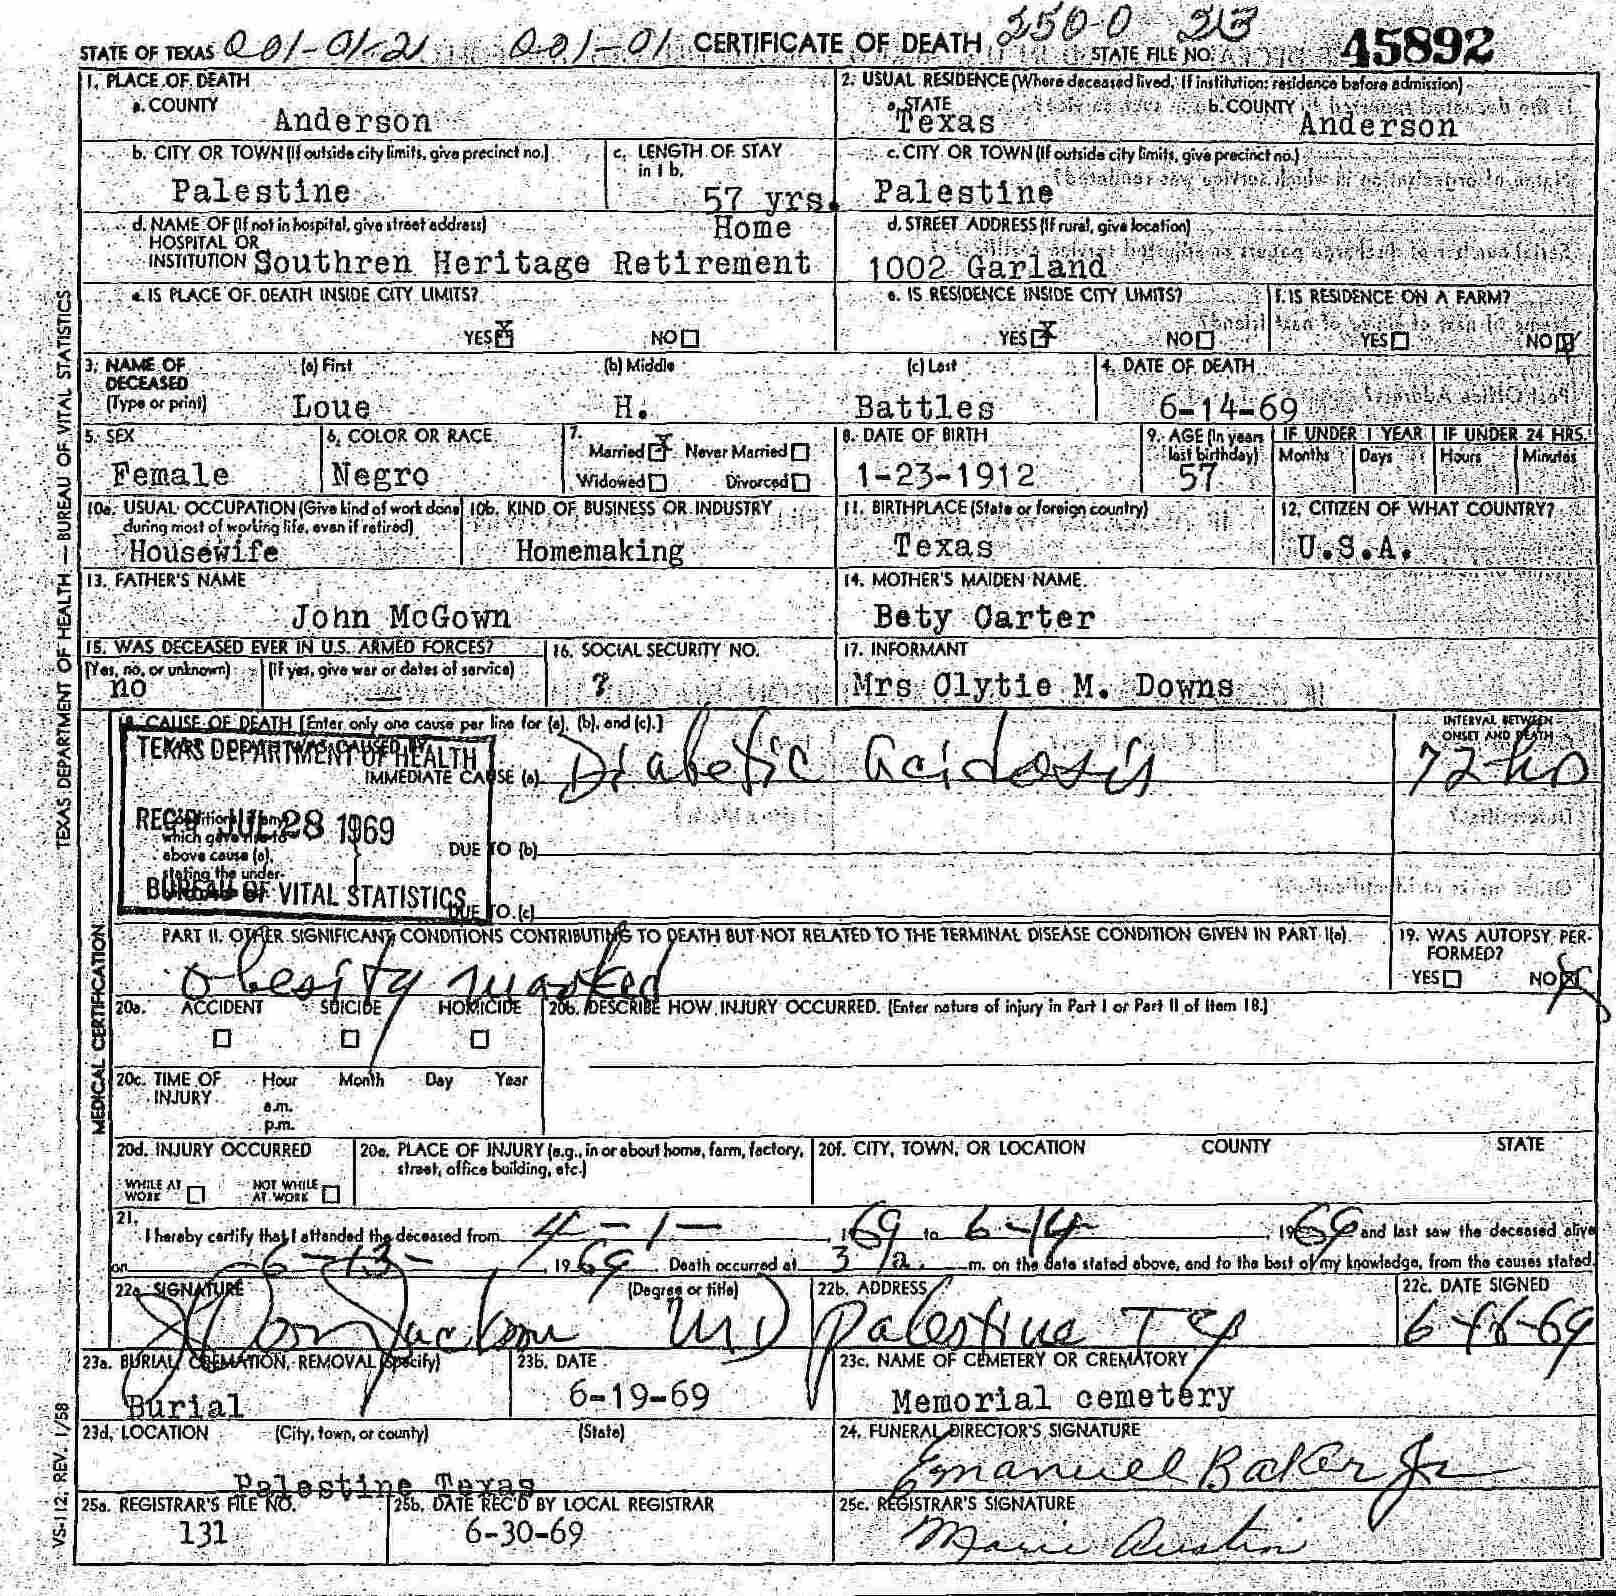 STATE OF TEXAS 001-01-2 001-01 CERTIFICATE OF DEATH 250-0 213 STATE FILE NO. 45892
1. PLACE OF DEATH
a. COUNTY
Anderson
2. USUAL RESIDENCE (Where deceased lived, If institution: residence before admission)
a. STATE b. COUNTY
Texas Anderson
b. CITY OR TOWN (If outside city limits, give precinct no.)
Palestine
c. LENGTH OF STAY
in 1 b.
57 yrs.
c. CITY OR TOWN (If outside city limits, give precinct no.)
Palestine
d. NAME OF (If not in hospital, give street address)
HOSPITAL OR
INSTITUTION Southren Heritage Retirement
Home
d. STREET ADDRESS (If rural, give location)
1002 Garland
e. IS PLACE OF DEATH INSIDE CITY LIMITS?
YES X NO
e. IS RESIDENCE INSIDE CITY LIMITS?
YES X NO
f. IS RESIDENCE ON A FARM?
YES NO X
3. NAME OF
DECEASED
(Type or print)
(a) First (b) Middle (c) Last
Loue H. Battles
4. DATE OF DEATH
6-14-69
5. SEX
Female
6. COLOR OR RACE
Negro
7.
Married X Never Married
Widowed Divorced
8. DATE OF BIRTH
1-23-1912
9. AGE (In years
last birthday)
57
IF UNDER 1 YEAR IF UNDER 24 HRS.
Months Days Hours Minutes
10a. USUAL OCCUPATION (Give kind of work done
during most of working life, even if retired)
Housewife
10b. KIND OF BUSINESS OR INDUSTRY
Homemaking
11. BIRTHPLACE (State or foreign country)
Texas
12. CITIZEN OF WHAT COUNTRY?
U.S.A.
13. FATHER'S NAME
John McGown
14. MOTHER'S MAIDEN NAME
Bety Carter
15. WAS DECEASED EVER IN U.S. ARMED FORCES?
(Yes, no, or unknown) (If yes, give war or dates of service)
no —
16. SOCIAL SECURITY NO.
?
17. INFORMANT
Mrs Clytie M. Downs
18. CAUSE OF DEATH [Enter only one cause per line for (a), (b), and (c).]
INTERVAL BETWEEN
ONSET AND DEATH
TEXAS DEPARTMENT OF HEALTH
REC'D JUL 28 1969
BUREAU OF VITAL STATISTICS
IMMEDIATE CAUSE (a) Diabetic acidosis 72 hrs
Conditions, if any,
which gave rise to
above cause (a),
stating the under-
DUE TO (b)
DUE TO (c)
PART II. OTHER SIGNIFICANT CONDITIONS CONTRIBUTING TO DEATH BUT NOT RELATED TO THE TERMINAL DISEASE CONDITION GIVEN IN PART I(a)
obesity marked
19. WAS AUTOPSY PER-
FORMED?
YES NO X
20a. ACCIDENT SUICIDE HOMICIDE
20b. DESCRIBE HOW INJURY OCCURRED. (Enter nature of injury in Part I or Part II of Item 18.)
20c. TIME OF
INJURY
Hour Month Day Year
a.m.
p.m.
20d. INJURY OCCURRED
WHILE AT
WORK
NOT WHILE
AT WORK
20e. PLACE OF INJURY (e.g., in or about home, farm, factory,
street, office building, etc.)
20f. CITY, TOWN, OR LOCATION COUNTY STATE
21.
I hereby certify that I attended the deceased from 4-1- 1969 to 6-14- 1969 and last saw the deceased alive
on 6-13- 1969 Death occurred at 3 a. m. on the date stated above, and to the best of my knowledge, from the causes stated.
22a. SIGNATURE (Degree or title)
MD
22b. ADDRESS
Palestine Tex
22c. DATE SIGNED
23a. BURIAL, CREMATION, REMOVAL (Specify)
Burial
23b. DATE
6-19-69
23c. NAME OF CEMETERY OR CREMATORY
Memorial cemetery
23d. LOCATION (City, town, or county) (State)
Palestine Texas
24. FUNERAL DIRECTOR'S SIGNATURE
Emanuel Baker Jr
25a. REGISTRAR'S FILE NO.
131
25b. DATE REC'D BY LOCAL REGISTRAR
6-30-69
25c. REGISTRAR'S SIGNATURE
Marie Austin
TEXAS DEPARTMENT OF HEALTH — BUREAU OF VITAL STATISTICS
MEDICAL CERTIFICATION
VS-112, REV. 1/58